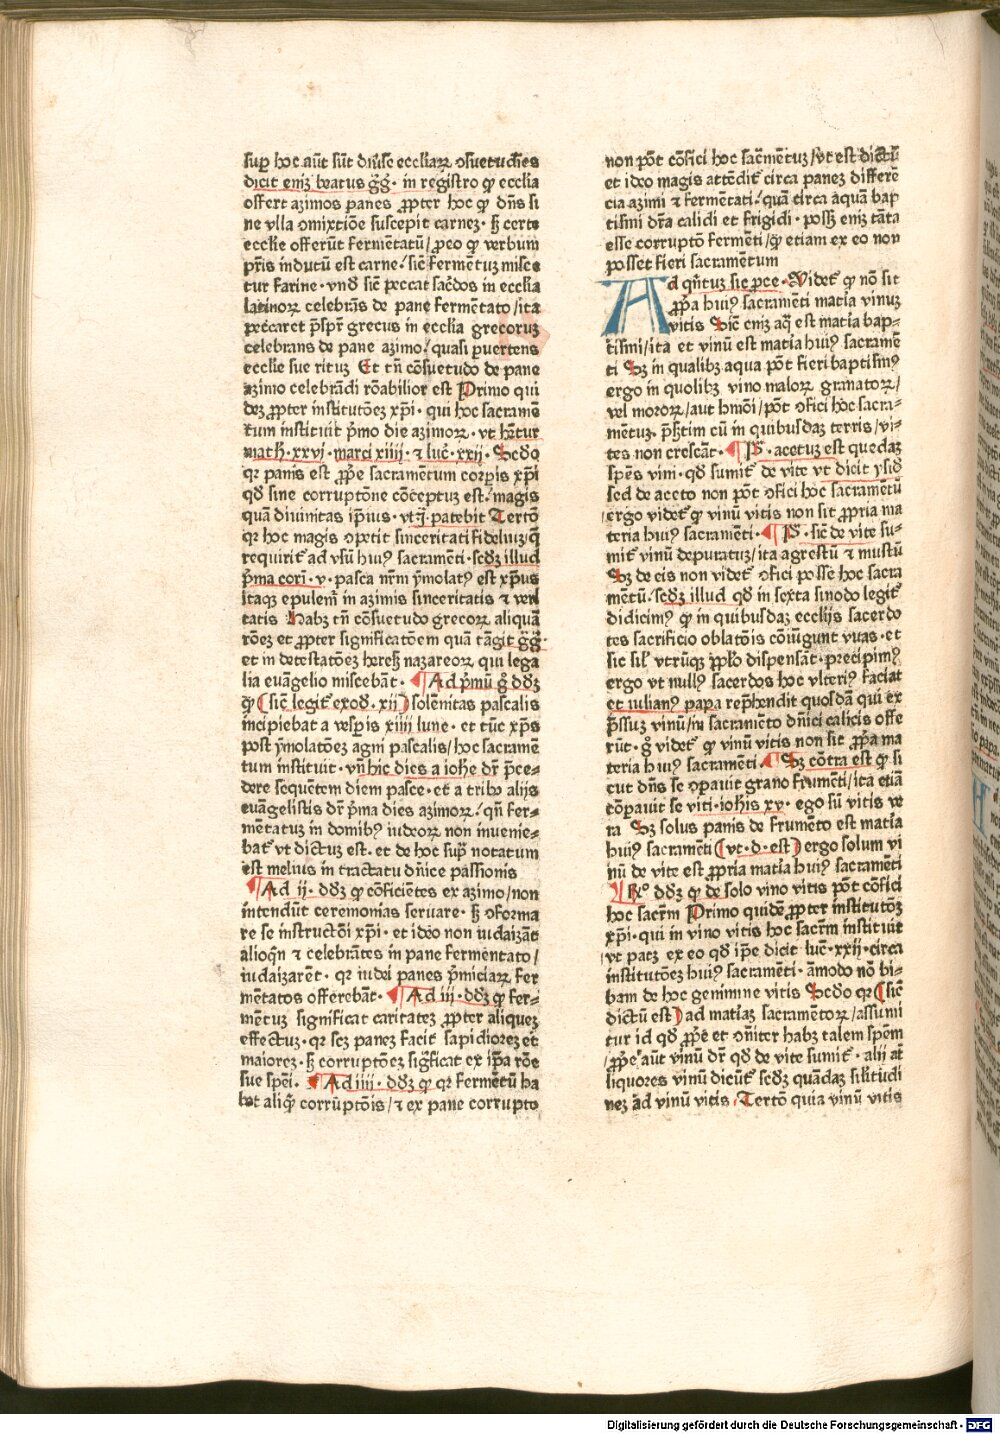 sup hoc aūt sūt diuse eccliaꝝ ꝯsuetudīes
dicit enīȝ beatus g̃g̃· in registro ꝙ ecclia
offert azimos panes ꝓpter hoc ꝙ dn̄s si
ne vlla ꝯmixtiōe suscepit carneȝ· sȝ certe
ecclie offerūt fermētatū/ꝓeo ꝙ verbum
pr̄is indutū est carne/sic̄ fermētuȝ misce
tur farine· vnd̄ sic̄ peccat sac̄dos in ecclia
latinoꝝ celebrās de pane fermētato/ita
peccaret p̄spr̄ grecus in ecclia grecoruȝ
celebrans de pane azimo/quasi ꝑuertens
ecclie sue rituȝ Et tn̄ cōsuetudo de pane
azimo celebrādi rōabilior est Primo qui
deȝ ꝓpter institutōeȝ xp̄i· qui hoc sacramē
tum instituit p̄mo die azimoꝝ· vt h̄etur
math̄·xxvj· marci xiiii· ⁊ luc̄·xxij· Scd̄o
qꝛ panis est ꝓpe sacramētum corpis xp̄i
qd̄ sine corruptōne cōceptus est· magis
quā diuinitas ip̄ius· vt ·j· patebit Tertō
qꝛ hoc magis ꝯpetit sinceritati fideliuȝ/q̄
requirit̄ ad vsū huiꝰ sacramēti·scd̄ȝ illud
p̄ma cori·v· pasca nr̄m ȳmolatꝰ est xp̄us
itaqȝ epulem̄ in azimis sinceritatis ⁊ veri
tatis Habȝ tn̄ cōsuetudo grecoꝝ aliquā
rōeȝ et ꝓpter significatōem quā tāgit g̃g̃·
et in detestatōeȝ heres̄ nazareoꝝ, qui lega
lia euāgelio miscebāt· Ad p̄mū g̊ dd̄ȝ
ꝙ (sic̄ legit̄ exod·xii) solēnitas pascalis
incipiebat a vesꝑis xiiii lune· et tūc xp̄s
post ȳmolatōeȝ agni pascalis/hoc sacramē
tum instituit· vn̄ hic dies a ioh̄e dr̄ p̄ce-
dere sequētem diem pasce·et a tribꝰ alijs
euāgelistis dr̄ p̄ma dies azimoꝝ/qn̄ fer-
mētatuȝ in domibꝰ iudeoꝝ non inuenie-
bat̄ vt dictuȝ est. et de hoc sup̄ notatum
est melius in tractatu dn̄ice passionis
Ad ii· dd̄ȝ ꝙ cōficiētes ex azimo/non
intendūt ceremonias seruare· sȝ ꝯforma
re se instructōi xp̄i· et ideo non iudaizāt
alioqn̄ ⁊ celebrātes in pane fermētato/
iudaizarēt· qꝛ iudei panes p̄miciaꝝ fer
mētatos offerebāt· Ad iii·dd̄ȝ ꝙ fer-
mētuȝ significat caritateȝ ꝓpter aliqueȝ
effectuȝ·qꝛ scȝ paneȝ facit sapidioreȝ et
maioreȝ·sȝ corruptōeȝ sig̃ficat ex ip̄a rōe
sue spēi· Ad iiii· dd̄ȝ ꝙ qꝛ fermētū ha
bet aliq̄ corrūptōis/⁊ ex pane corrupto
non pōt cōfici hoc sac̄mētuȝ/vt est dictū
et ideo magis attēdit̄ circa paneȝ differē
cia azimi ⁊ fermētati/quā circa aquā bap
tismi dr̄a calidi et frigidi· possȝ enīȝ tāta
esse corruptō fermēti/ꝙ etiam ex eo non
posset fieri sacramētum
Ad qn̄tuȝ sic pce· Videt̄ ꝙ nō sit
ꝓp̄a huiꝰ sacramēti matia vinuȝ
vitis Sic̄ enīȝ aq̄ est matia bap-
tismi/ita et vinū est matia huiꝰ sacramē
ti Sȝ in qualibȝ aqua pōt fieri baptismꝰ
ergo in quolibȝ vino maloꝝ granatoꝝ/
vel moroꝝ/aut hmōi/pōt ꝯfici hoc sacra-
mētuȝ· p̄s̄tim cū in quibusdaȝ terris/vi-
tes non crescāt· P̄· acetuȝ est quedaȝ
spēs vini·qd̄ sumit̄ de vite vt dicit ysid̄
sed de aceto non pōt ꝯfici hoc sacramētū
ergo videt̄ ꝙ vinū vitis non sit ꝓpria ma
teria huiꝰ sacramēti· P̄· sic̄ de vite su-
mit̄ vinū depuratuȝ/ita agrestū ⁊ mustū
Sȝ de eis non videt̄ ꝯfici posse hoc sacra
mētū·scd̄ȝ illud qd̄ in sexta sinodo legit̄
didicimꝰ ꝙ in quibusdaȝ ecclijs sacerdo
tes sacrificio oblatōis cōiūgunt vuas·et
sic sil̄ vtrūqȝ pp̄lo dispensāt·precipimꝰ
ergo vt nullꝰ sacerdos hoc vlteriꝰ faciat
et iulianꝰ papa rep̄hendit quosdā qui ex
p̄ssuȝ vinū/in sacramēto dn̄ici calicis offe
rūt·g̊ videt̄ ꝙ vinū vitis non sit ꝓp̄a ma
teria huiꝰ sacramēti· Sȝ cōtra est ꝙ si
cut dn̄s se ꝯparuit grano frumēti/ita etiā
cōpauit se viti·ioh̄is xv· ego sū vitis ve
ra Sȝ solus panis de frumēto est matia
huiꝰ sacramēti (vt·d·est) ergo solum vi
nū de vite est ꝓpria matia huiꝰ sacramēti
R̊ dd̄ȝ ꝙ de solo vino vitis pōt cōfici
hoc sacr̄m Primo quidē ꝓpter institutōȝ
xp̄i·qui in vino vitis hoc sacr̄m instituit
vt patȝ ex eo qd̄ ip̄e dicit luc̄·xxij·circa
institutōeȝ huiꝰ sacramēti· āmodo nō bi-
bam de hoc genimine vitis Scd̄o qꝛ (sic̄
dictū est) ad matiaȝ sacramētoꝝ/assumi
tur id qd̄ ꝓpe et ꝯiter habȝ talem spēm
ꝓpe aūt vinū dr̄ qd̄ de vite sumit̄· alij at̄
liquores vinū dicūt̄ scd̄ȝ quādaȝ sil̄itudi
neȝ ad vinū vitis Tertō quia vinū vitis
Digitalisierung gefördert durch die Deutsche Forschungsgemeinschaft · DFG